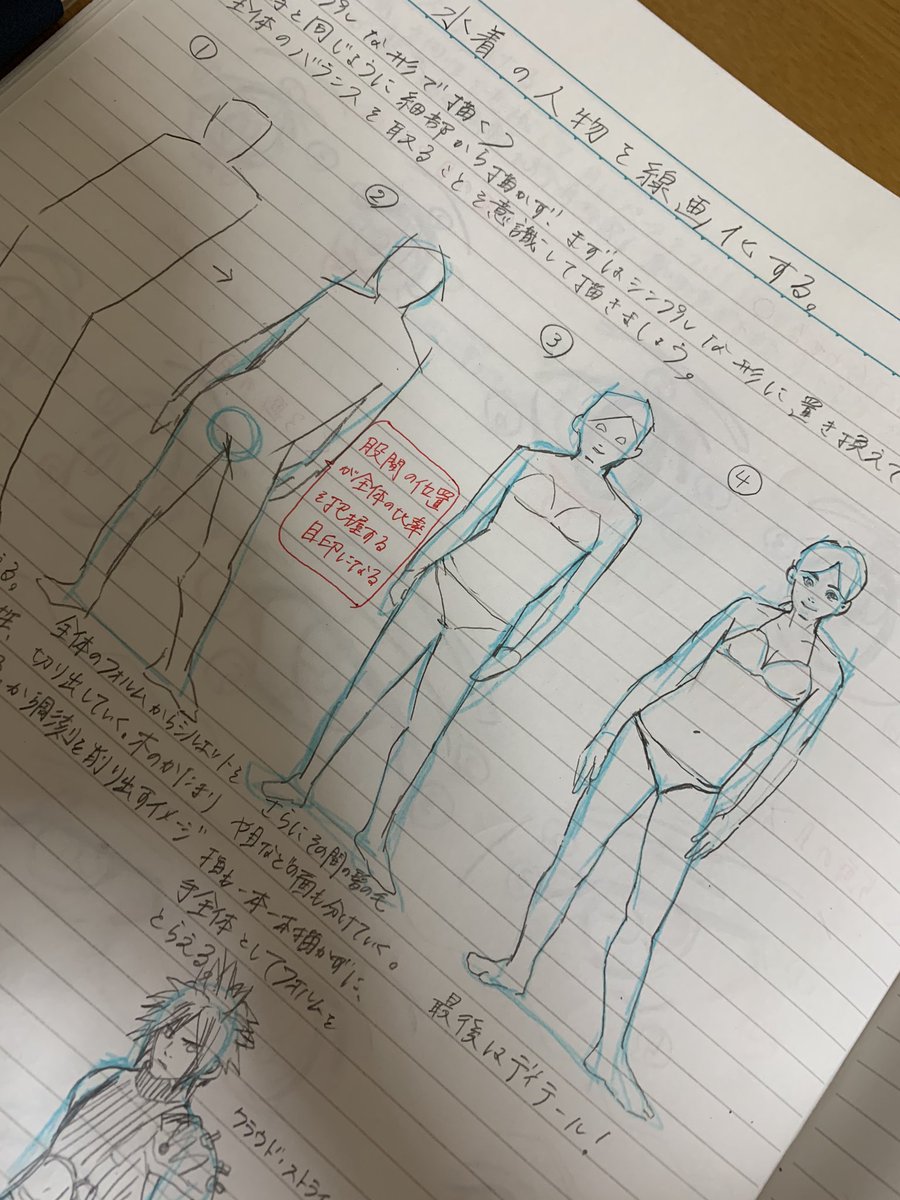 水着の人物を線画化する。
プルな形で描く
と同じように細部から描かず、まずはシンプルな形に置き換えて
全体のバランスを取ることを意識して描きましょう。
①
②
③
④
→
股関の位置
が全体の比率
を把握する
目印になる
る。
全体のフォルムからシルエットを
切り出していく。木のかたまり
から彫刻を削り出すイメージ
さらにその間の髪の毛
や目などの面も分けていく。
指も一本一本描かずに、
手全体としてフォルムを
とらえる。
最後はディテール!
クラウド・ストライ